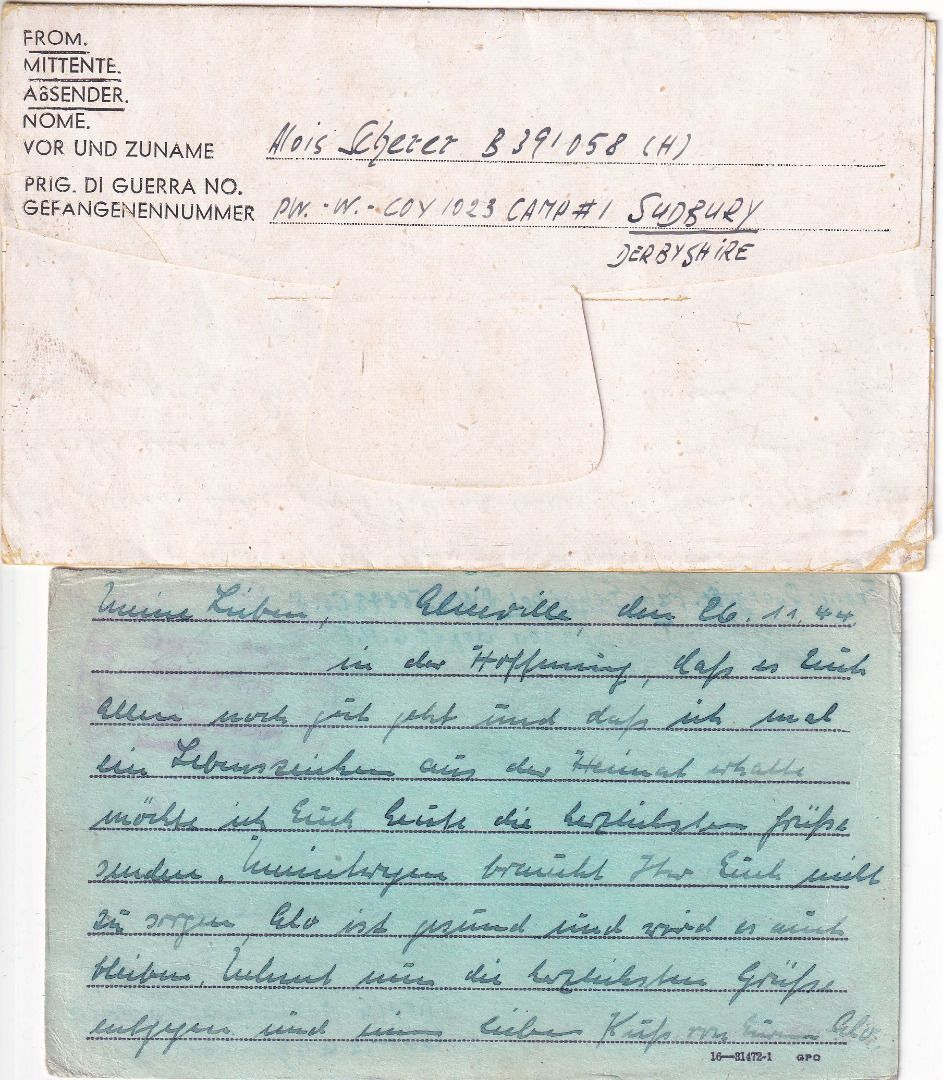 FROM.
MITTENTE.
ABSENDER.
NOME.
VOR UND ZUNAME Alois Scherer B 391058 (H)
PRIG. DI GUERRA NO.
GEFANGENENNUMMER PW.-W.-COY 1023 CAMP #1 SUDBURY
DERBYSHIRE
Meine Lieben, den 26.11.44.
in der Hoffnung, daß es Euch
allen noch gut geht und daß ich mal
ein Lebenszeichen aus der Heimat erhalte
möchte ich Euch heute die herzlichsten Grüße
senden. Meinetwegen braucht Ihr Euch nicht
zu sorgen, ist gesund und wird es auch
bleiben. Nehmt nun die herzlichsten Grüße
entgegen und einen lieben Kuß von Eurem
16—31472-1 GPO